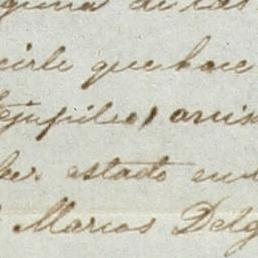 de las
cirle que hace
Tejupilco, arris
ber estado en
Marcos Delg